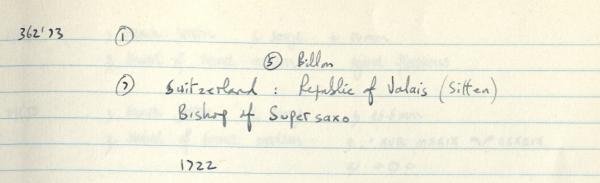 362'73 ①
⑤ Billon
⑦ Switzerland : Republic of Valais (Sitten)
Bishop of Supersaxo
1722